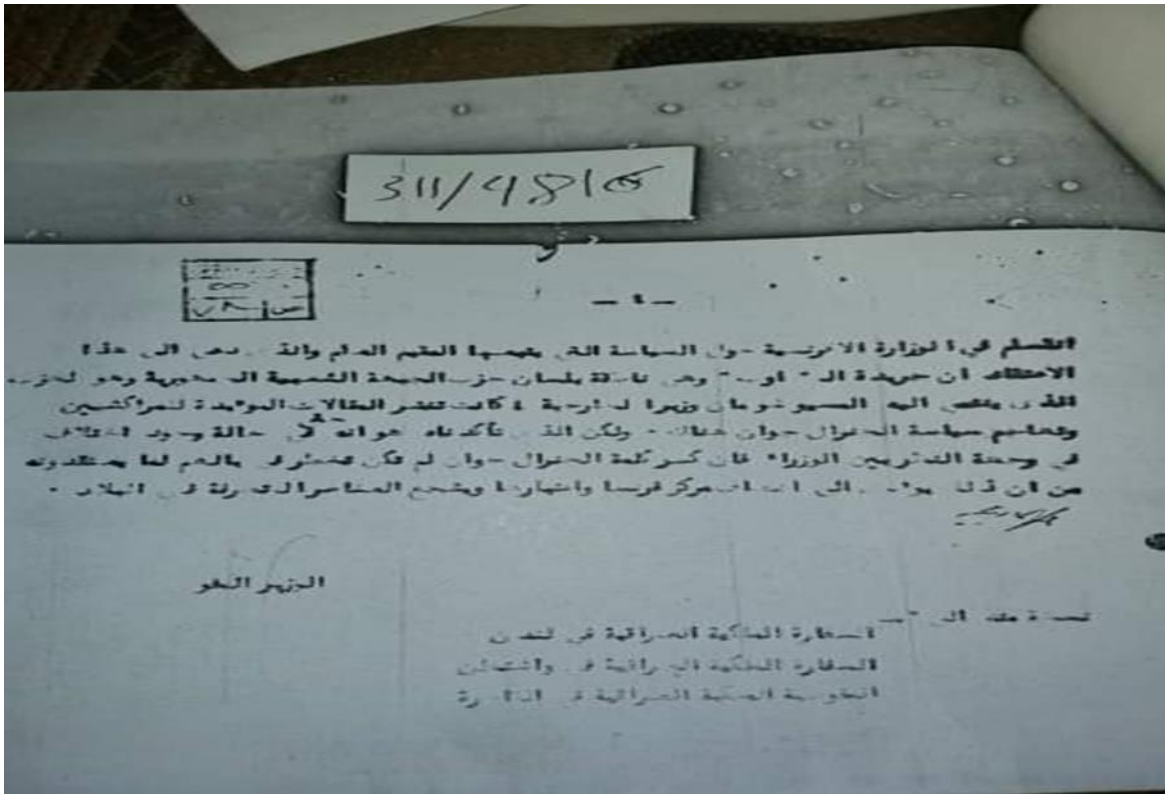 311/4816
ص ٧٨
- ٤ -
القسم في الوزارة الافرنسية حول السياسة التي يتبعها المقيم العام والذى دعى الى هذا
الاعتقاد ان جريدة الـ " اوب " وهي ناطقة بلسان حزب الجبهة الشعبية الجمهورية وهو الحزب
الذى ينتمى اليه المسيو شومان وزير الخارجية كانت تنشر المقالات المؤيدة للمراكشيين
وتهاجم سياسة الجنرال جوان هناك ولكن الذى تأكدناه هو انه في حالة وجود اختلاف
في وجهة النظر بين الوزراء فان كسر كلمة الجنرال جوان لم تكن تخطر في بالهم لما يعتقدونه
من ان ذلك الى مركز فرنسا وانهيارها ويشجع العناصر المتطرفة في البلاد .
الوزير المفوض
نسخة منه الى
السفارة الملكية العراقية في لندن
السفارة الملكية العراقية في واشنطن
المفوضية الملكية العراقية في القاهرة